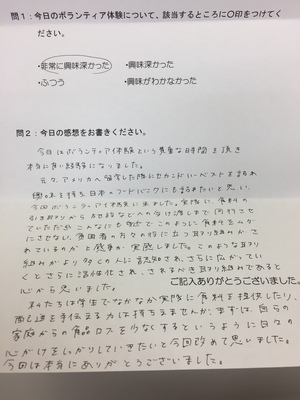 問1：今日のボランティア体験について、該当するところに○印をつけてく
ださい。
・非常に興味深かった ・興味深かった
・ふつう ・興味がわかなかった
問2：今日の感想をお書きください。
今日はボランティア体験という貴重な時間を頂き
本当に良い経験になりました。
元々、アメリカへ留学した際にセカンドハーベストを訪れ
興味を持ち日本のフードバンクにも訪れたいと思い、
今回ボランティア体験に来ました。実際に、食料の
引き取りから
ていただき、こんなにも身近でこのように食料をムダ
にさせない、貧困者の方々の為になる取り組みがさ
れているのかと感動・実感しました。このような取り
組みがより多くの人に認知され、さらに広がってい
くとさらに活性化され、されるべき取り組みであると
心から思いました。
ご記入ありがとうございました。
私たちは学生でなかなか実際に食料を提供したり、
間し達を手伝える力は持ちえませんが、まずは、自らの
家庭からの食品ロスを少なくするというように日々の
心がけをしっかりしていきたいと今回改めて思いました。
今回は本当にありがとうございました。